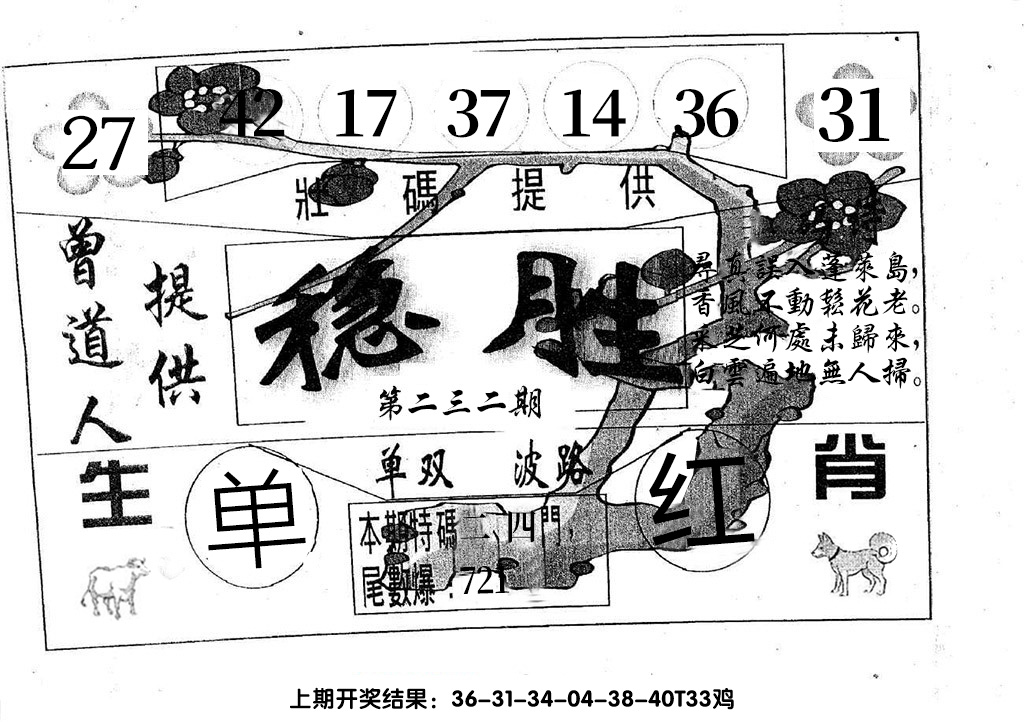 27 42 17 37 14 36 31
壯碼提供
曾道人
提供
稳胜
第二三二期
尋真誤入蓬萊島,
香風不動鬆花老。
采芝何處未歸來,
白雲遍地無人掃。
单双 波路
生肖
单
红
本期特碼二、四門,
尾數爆:721
上期开奖结果:36-31-34-04-38-40T33鸡